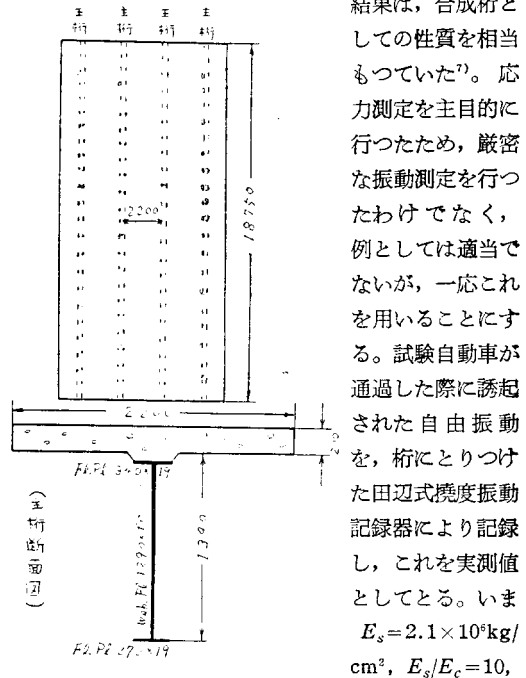 主桁 主桁 主桁 主桁
2200
18750
2200
Fl. Pl 240×19
1300
Fl. Pl 270×19
(主桁断面図)
結果は,合成桁と
しての性質を相当
もつていた⁷⁾。応
力測定を主目的に
行つたため,厳密
な振動測定を行つ
たわけでなく,
例としては適当で
ないが,一応これ
を用いることにす
る。試験自動車が
通過した際に誘起
された自由振動
を,桁にとりつけ
た田辺式撓度振動
記録器により記録
し,これを実測値
としてとる。いま
E_s=2.1×10⁶kg/
cm², E_s/E_c=10,